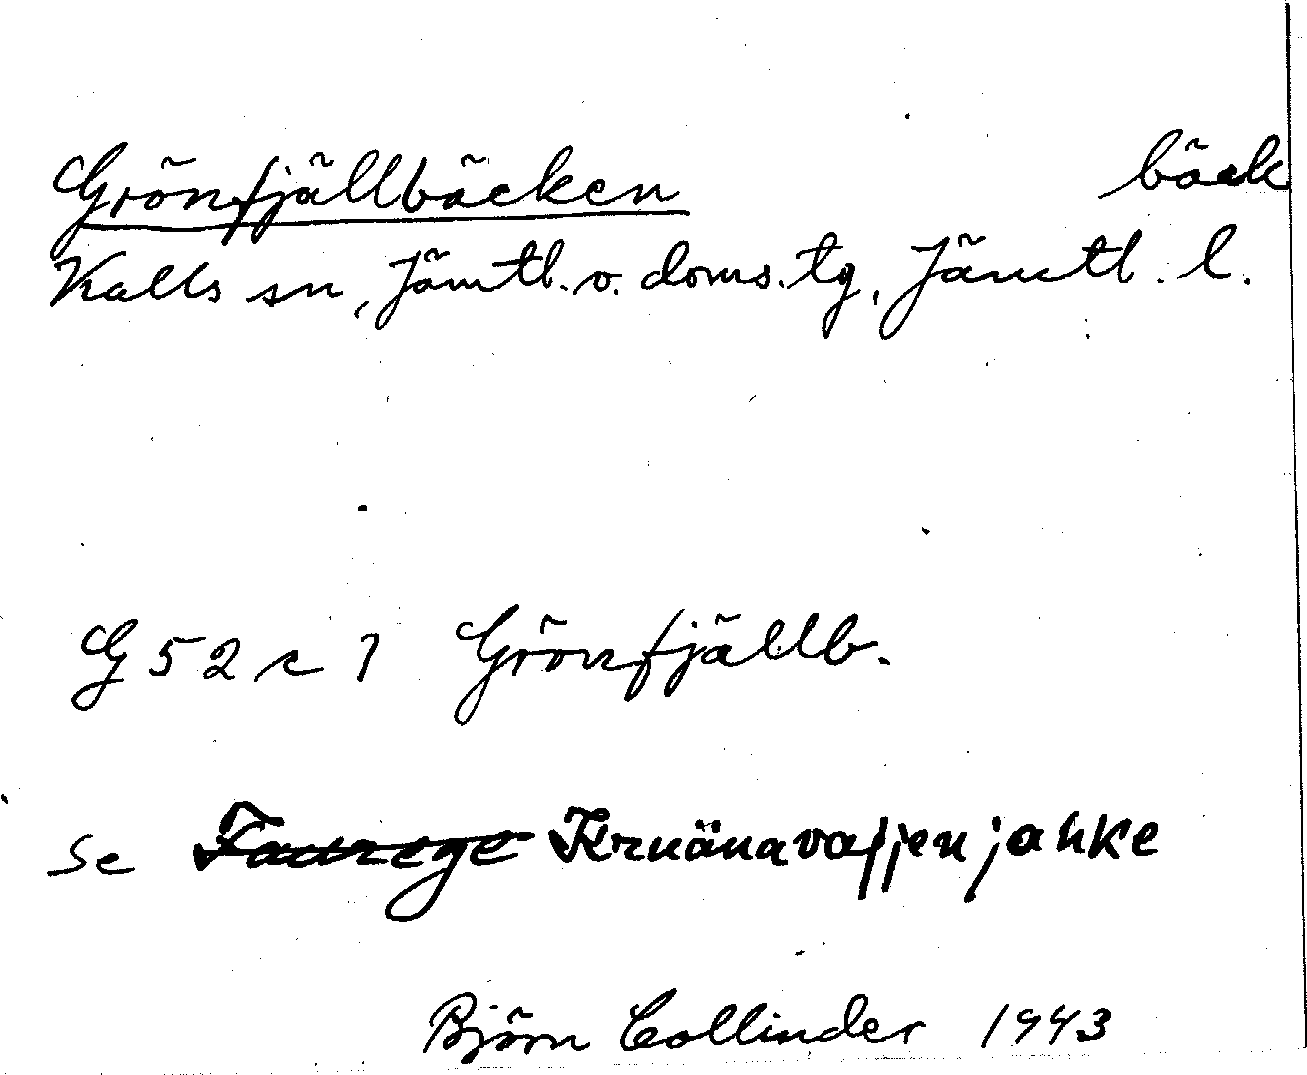 Grönfjällbäcken bäck
Kalls sn, Jämtl. v. doms. tg, Jämtl. l.
G 52 c 1 Grönfjällb.
Se Krnänavaſjenjahke
Björn Collinder 1943